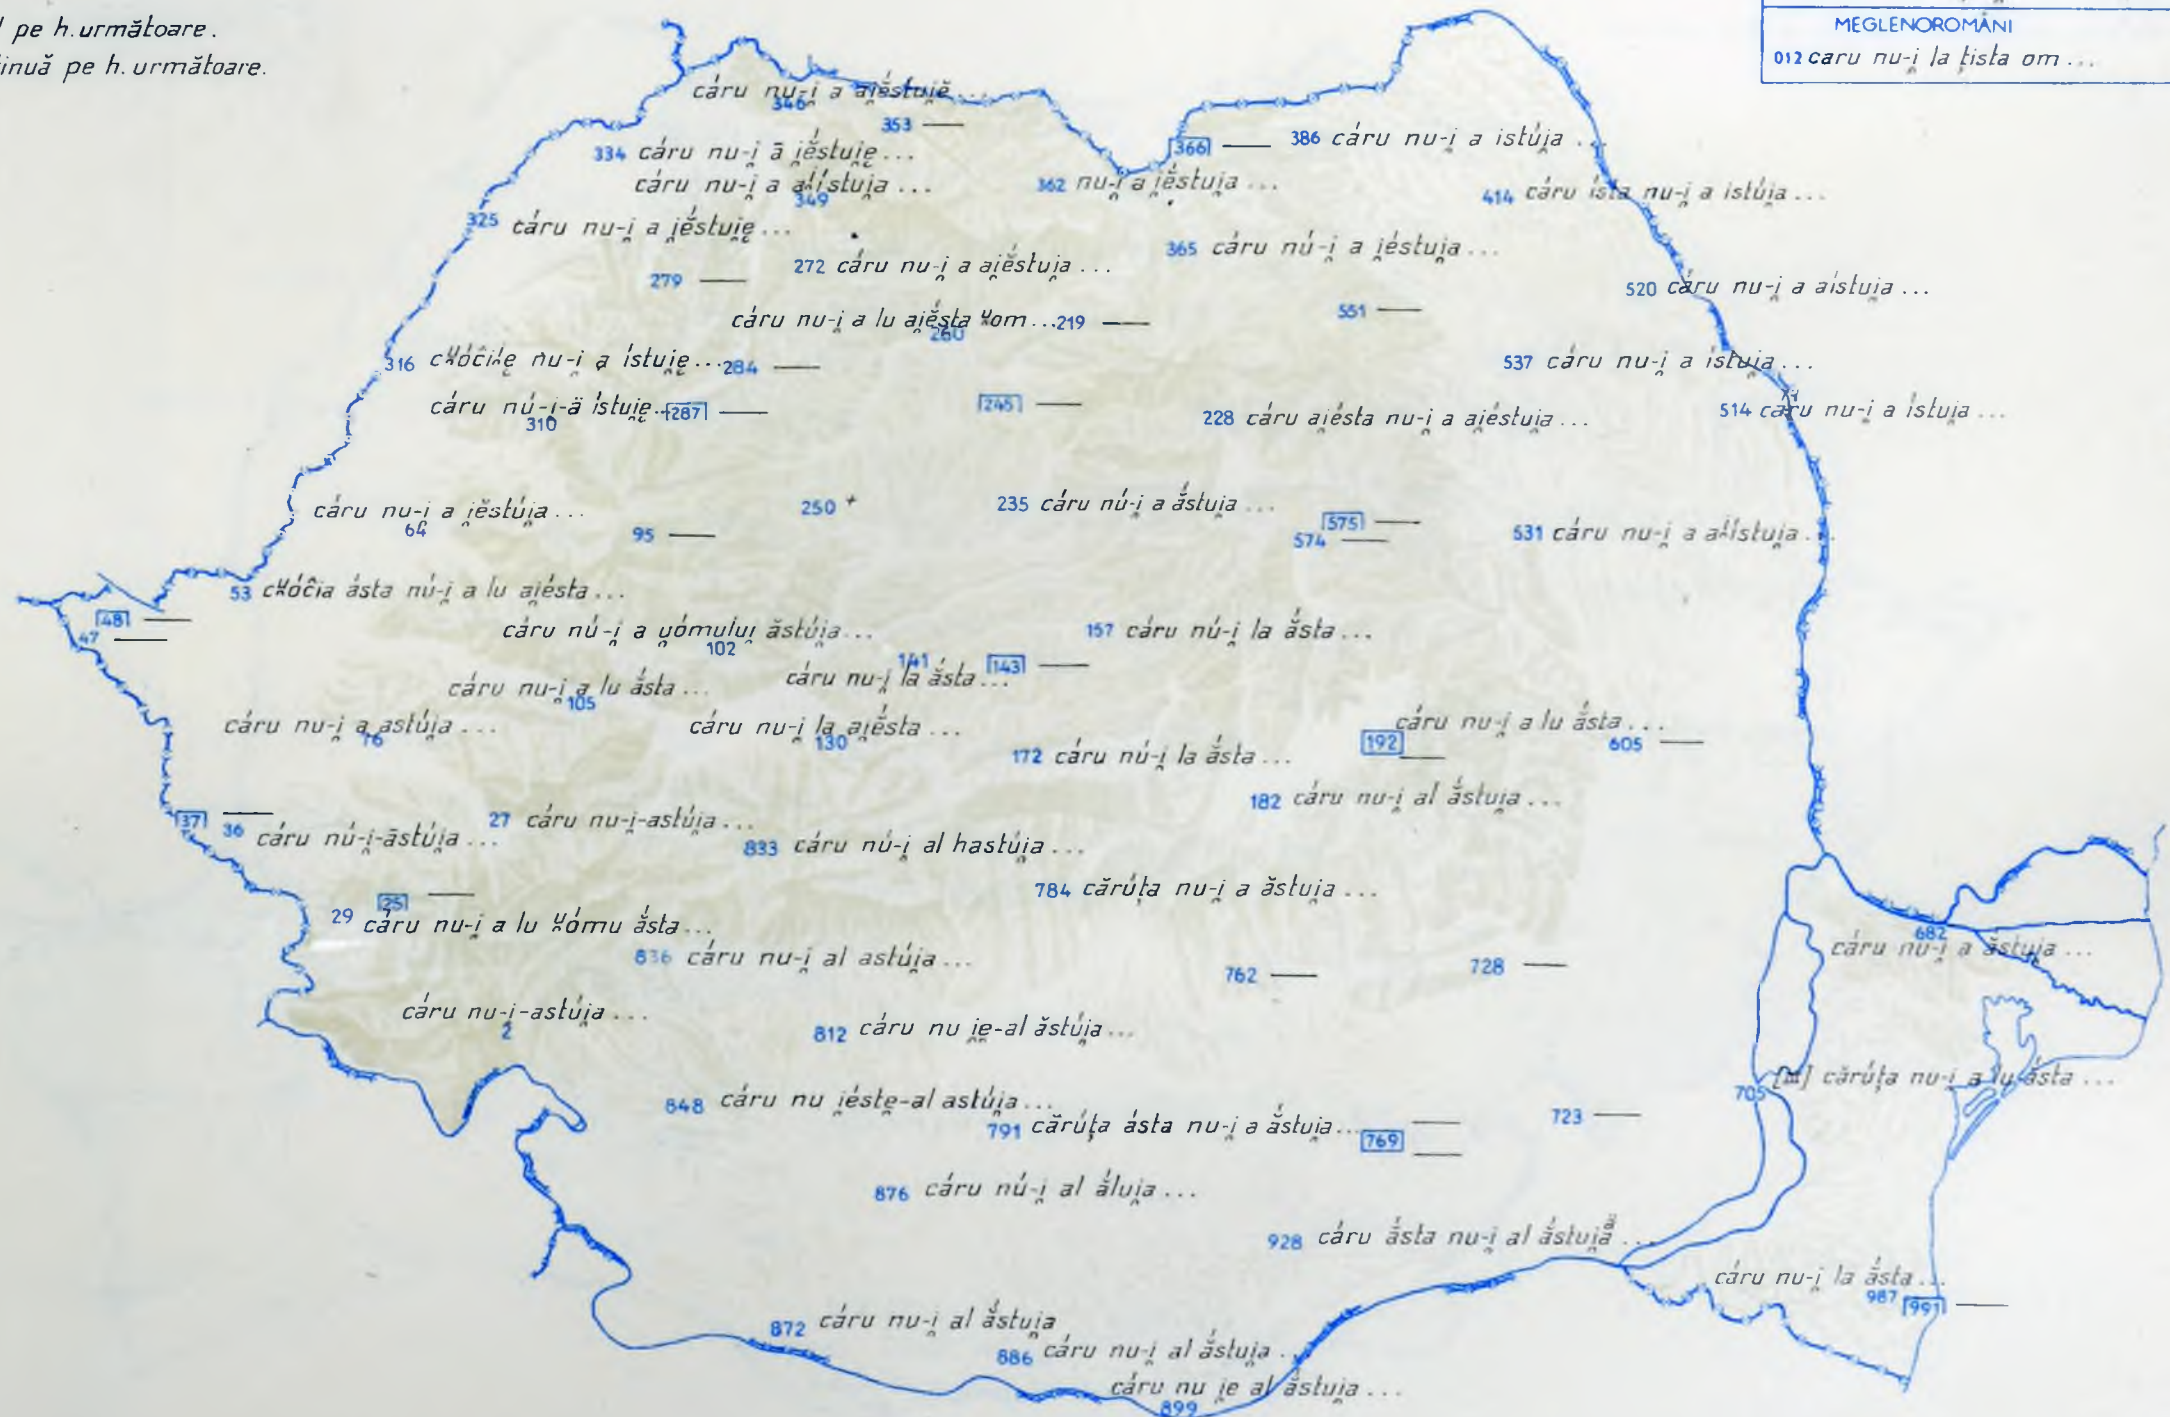 pe h. următoare.
pe h. următoare.
MEGLENOROMÂNI
012 caru nu-i̯ la ţista om ...
cáru nu-i̯ a ai̯éstui̯ĕ ...
346
353 —
334 cáru nu-i̯ ā i̯ĕ́stui̯ę ...
366 —
386 cáru nu-i̯ a istúi̯a ...
cáru nu-i̯ a
349
362 nu-i̯ a i̯ĕ́stui̯a ...
414 cáru ísta nu-i̯ a istúi̯a ...
325 cáru nu-i̯ a i̯ĕ́stui̯ę ...
365 cáru nú-i̯ a i̯éstui̯a ...
272 cáru nu-i̯ a ai̯ĕ́stui̯a ...
279 —
520 cáru nu-i̯ a aístui̯a ...
551 —
cáru nu-i̯ a lu ai̯ĕ́sta ᵘom ...
260
219 —
316 nu-i̯ a ístui̯ę ...
284 —
537 cáru nu-i̯ a ístui̯a ...
cáru nú-i̯-ä ístui̯ę ...
310
287 —
245 —
228 cáru ai̯ésta nu-i̯ a ai̯éstui̯a ...
514 cáru nu-i̯ a ístui̯a ...
cáru nu-i̯ a i̯ĕstúi̯a ...
64
95 —
250 +
235 cáru nú-i̯ a ắstui̯a ...
575 —
574 —
531 cáru nu-i̯ a
53 ásta nú-i̯ a lu ai̯ésta ...
48 —
47 —
cáru nú-i̯ a u̯ómului̯ ăstúi̯a ...
102
157 cáru nú-i̯ la ắsta ...
141
cáru nu-i̯ la ắsta ...
143 —
cáru nu-i̯ a lu ắsta ...
105
cáru nu-i̯ a astúi̯a ...
76
cáru nu-i̯ la ai̯ĕ́sta ...
130
172 cáru nú-i̯ la ắsta ...
192 —
cáru nu-i̯ a lu ắsta ...
605 —
182 cáru nu-i̯ al ắstui̯a ...
37 —
36 cáru nú-i̯-ăstúi̯a ...
27 cáru nu-i̯-astúi̯a ...
833 cáru nú-i̯ al hastúi̯a ...
784 cărúţa nu-i̯ a ăstui̯a ...
25 —
29 cáru nu-i̯ a lu ᵘómu ắsta ...
836 cáru nu-i̯ al astúi̯a ...
762 —
728 —
682
cáru nu-i̯ a ắstui̯a ...
cáru nu-i̯-astúi̯a ...
2
812 cáru nu i̯e-al ăstúi̯a ...
705 [m] cărúţa nu-i̯ a lu ắsta ...
848 cáru nu i̯éste-al astúi̯a ...
791 cărúţa ásta nu-i̯ a ắstui̯a ...
769 —
723 —
876 cáru nú-i̯ al ắlui̯a ...
928 cáru ắsta nu-i̯ al ắstui̯ă ...
cáru nu-i̯ la ắsta ...
987
991 —
872 cáru nu-i̯ al ắstui̯a
886 cáru nu-i̯ al ắstui̯a ...
cáru nu i̯e al ắstui̯a ...
899